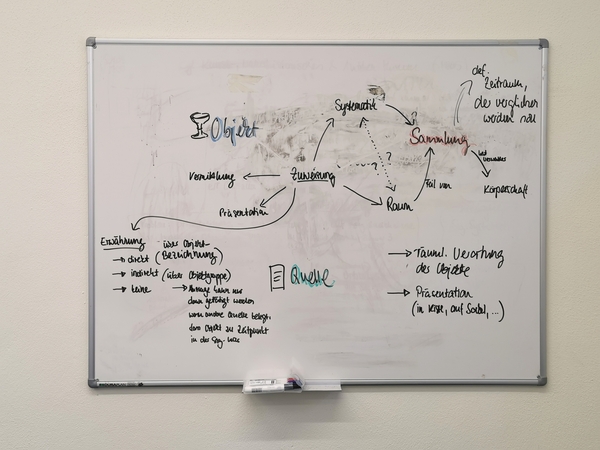 Objekt
Systematik
def.
Zeitraum,
der verglichen
werden
Sammlung
Vermittlung
Zuweisung
?
?
Körperschaft
Präsentation
Raum
Teil von
Erwähnung
über Objekt-
Bezeichnung)
direkt
indirekt (über Objektgruppe)
keine
Aussage kann nur
dann getätigt werden
wenn andere Quelle belegt,
dass Objekt zu Zeitpunkt
in der Slg. war
Quelle
räuml. Verortung
des Objekts
Präsentation
(in Vitrine, auf Sockel, ...)